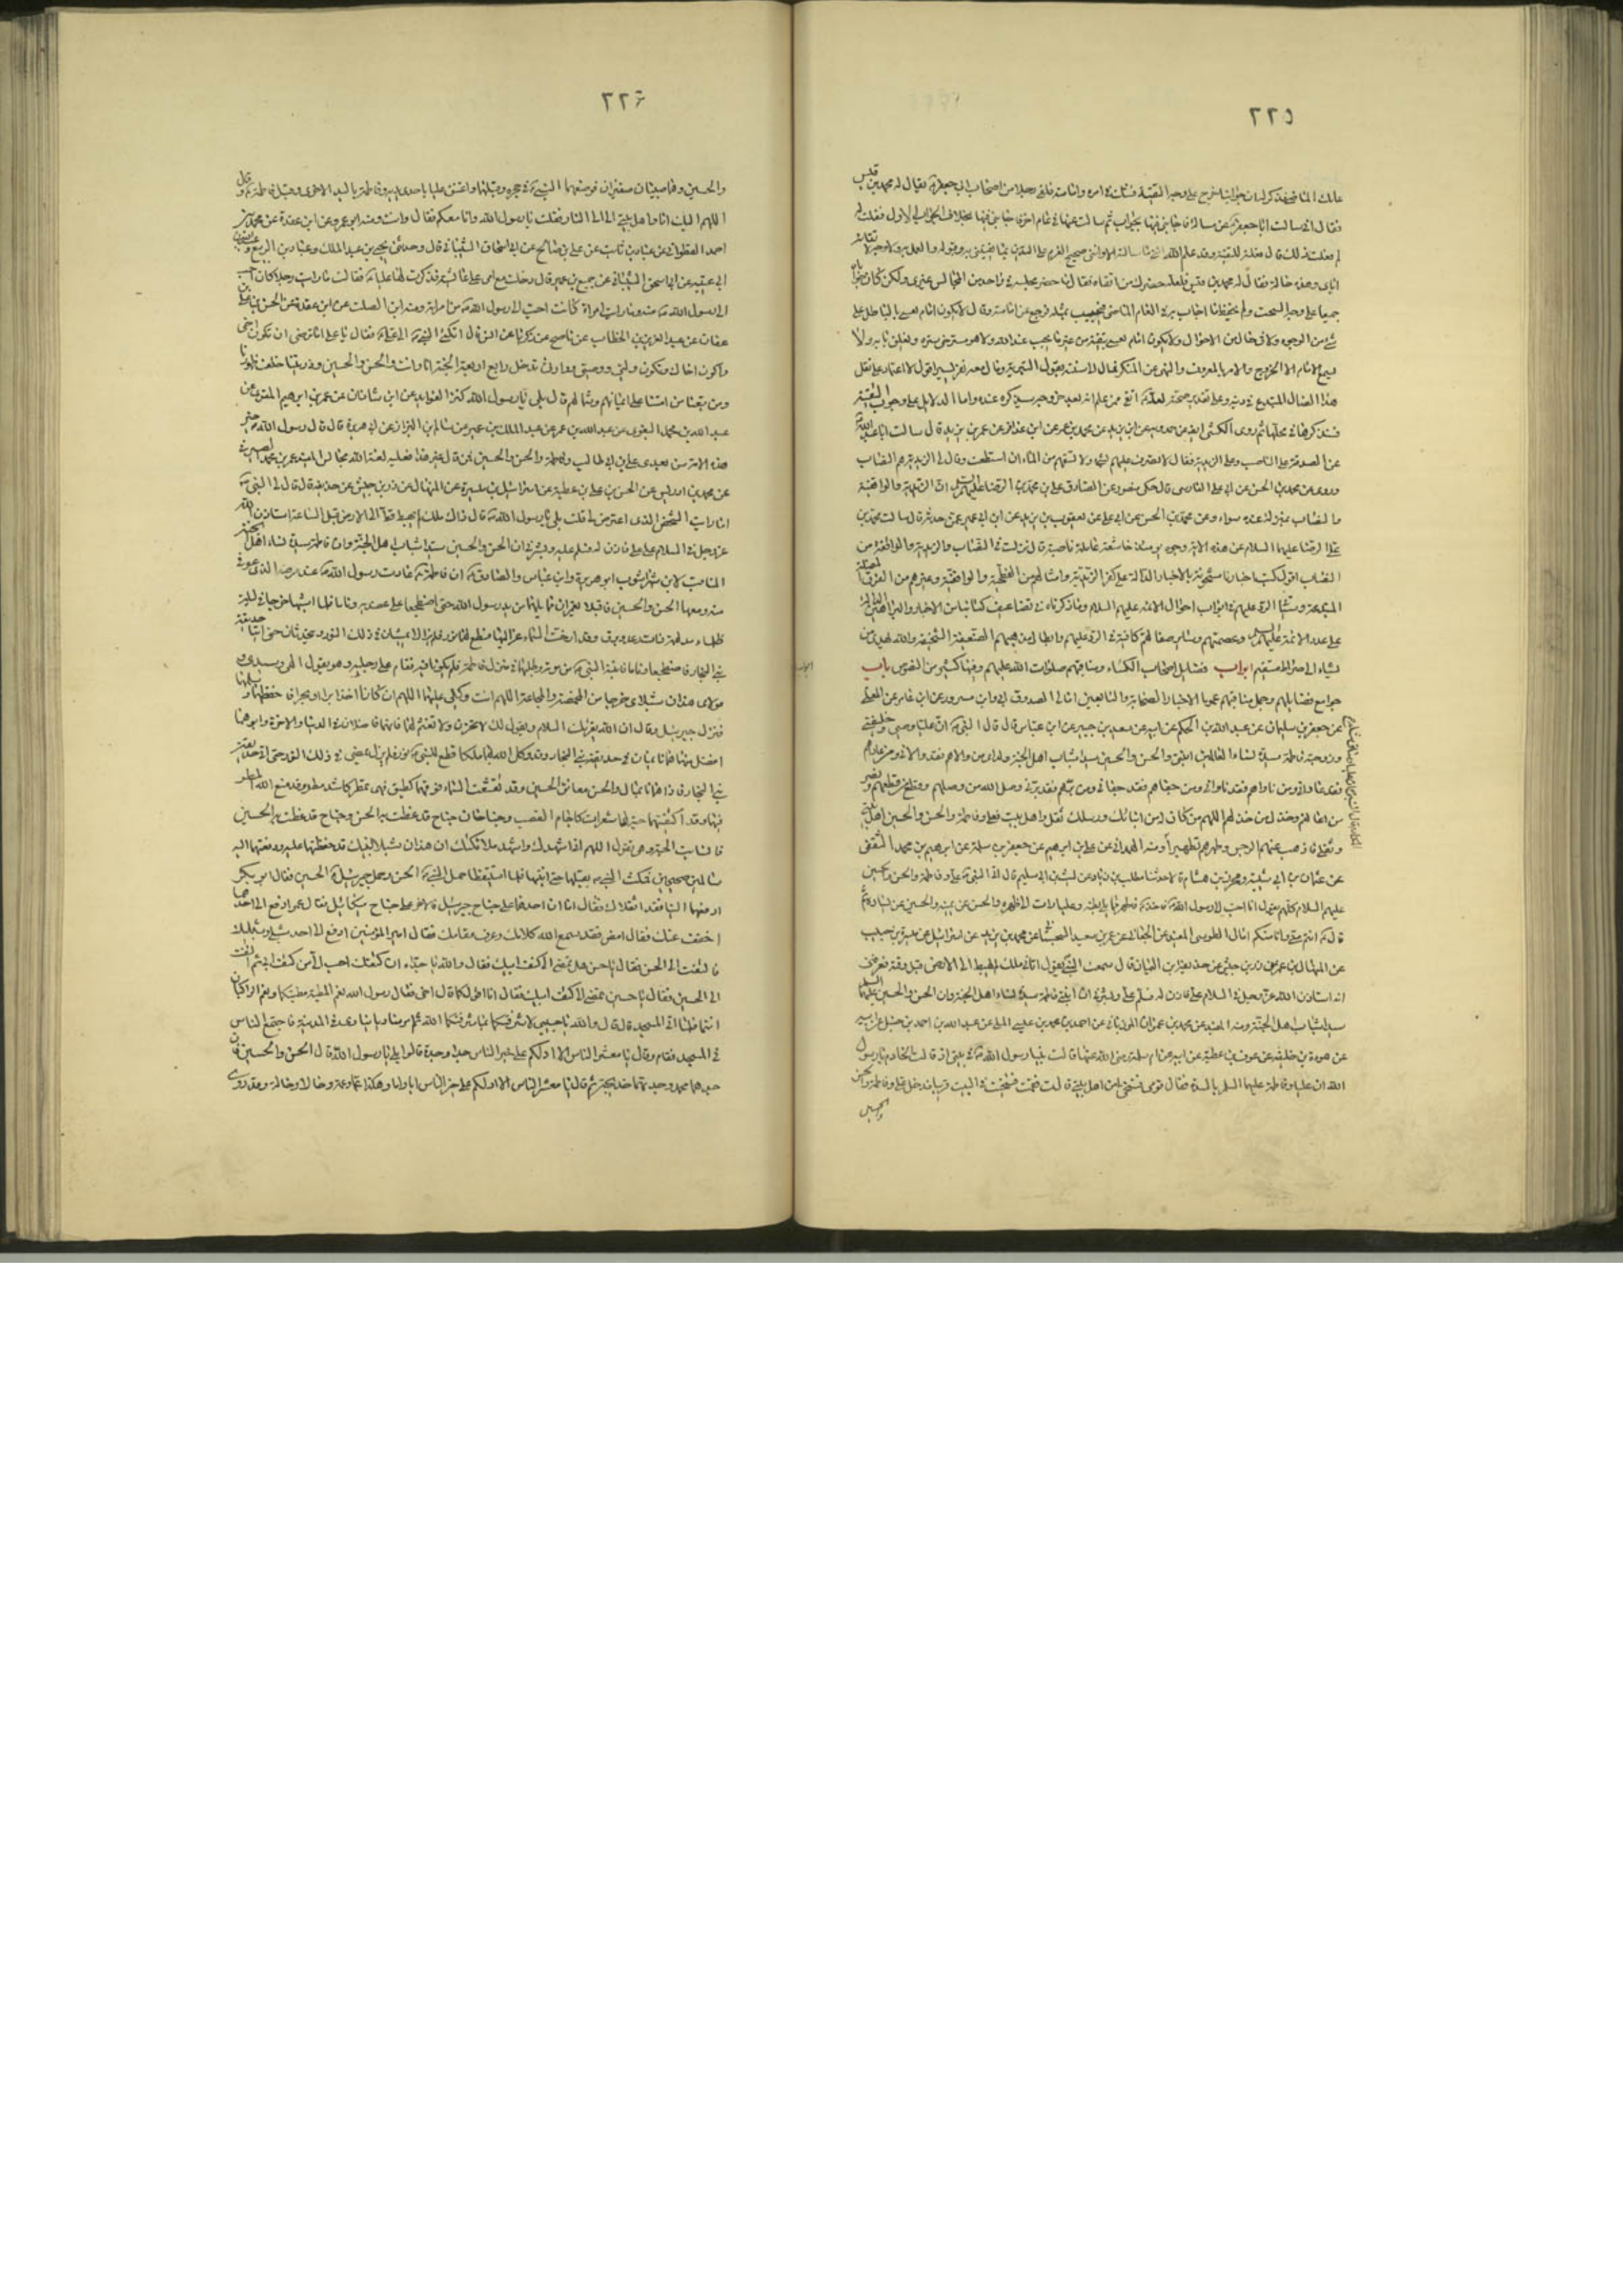 ٢٢٥
عامك الماضي فذكر لنا ان جوابنا خرج على وجه التقية فشككت في امره وامامته فلقي رجلا من اصحاب ابي جعفر يقال له محمد بن قيس
فقال اني سالت ابا جعفر عن مسالة فاجابني فيها بجواب ثم سالت عنها في عام اخر فاجابني فيها بخلاف الجواب الاول فقلت له
لم فعلت ذلك قال فعلته للتقية وقد علم الله انني ما سالته الا وانني صحيح العزم على التدين بما يفتيني به وقبوله والعمل به ولا وجه لاتقائه
اياي وهذه حاله فقال له محمد بن قيس فلعله حضرك من اتقاه فقال ما حضر مجلسه في واحد من المجالس غيري ولكن كان جوابه
جميعا على وجه السحت ولم يحفظ ما اجاب به في العام الماضي فيجيب بمثله فرجع عن امامته وقال لا يكون امام يفتي بالباطل على
شيء من الوجوه ولا في حال من الاحوال ولا يكون امام يفتي بتقية من غير ما يجب عند الله ولا هو مرخي ستره ويغلق بابه ولا
يسع الامام الا الخروج والامر بالمعروف والنهي عن المنكر فمال الى سنته بقول البترية ومال معه نفر يسير اقول لا اعتماد على نقل
هذا الضال المبتدع في دينه وعلى تقدير صحته لعله اتقى ممن علم انه بعد خروجه سيذكره عنده واما الدلايل على وجوب التقية
فسنذكرها في محلها ثم روى الكشي
عن الصدقة على الناصب وعلى الزيدية فقال لا تصدق عليهم بشيء ولا تسقهم من الماء ان استطعت وقال لي الزيدية هم النصاب
وروى عن محمد بن الحسن عن ابي علي الفارسي قال حكى منصور عن الصادق علي بن محمد بن الرضا عليهم السلم ان الزيدية والواقفة
والنصاب بمنزلة عنده سواء وعن محمد بن الحسن عن ابي علي عن يعقوب بن يزيد عن ابن ابي عمير عمن حدثه قال سالت محمد بن
علي الرضا عليهما السلام عن هذه الاية وجوه يومئذ خاشعة عاملة ناصبة قال نزلت في النصاب والزيدية والواقفة من
النصاب اقول كتب اخبارنا مشحونة بالاخبار الدالة على كفر الزيدية وامثالهم من الفطحية والواقفة وغيرهم من الفرق المضلة
المبتدعة وسياتي الرد عليهم في ابواب احوال الائمة عليهم السلام وما ذكرناه في تضاعيف كتابنا من الاخبار والبراهين الدالة
على عدد الائمة عليهم السلم وعصمتهم وساير صفاتهم كافية في الرد عليهم وابطال مذهبهم الضعيفة السخيفة والله يهدي من
يشاء الى صراط مستقيم ابواب فضايل اصحاب الكساء ومناقبهم صلوات الله عليهم وفيها كثير من النصوص باب
جوامع فضايلهم وجمل مناقبهم عموما الاخبار الصحابة والتابعين امالي الصدوق ابي وابن مسرور عن ابن عامر عن المعلى
عن جعفر بن سليمان عن عبد الله بن الحكم عن ابيه عن سعيد بن جبير عن ابن عباس قال قال النبي ان عليا وصيي وخليفتي
وزوجته فاطمة سيدة نساء العالمين ابنتي والحسن والحسين سيدا شباب اهل الجنة ولداي من والاهم فقد والاني ومن عاداهم
فقد عاداني ومن ناواهم فقد ناواني ومن جفاهم فقد جفاني ومن برهم فقد برني وصل الله من وصلهم وقطع من قطعهم ونصر
من اعانهم وخذل من خذلهم اللهم من كان له من انبيائك ورسلك ثقل واهل بيت فعلي وفاطمة والحسن والحسين اهل بيتي
وثقلي فاذهب عنهم الرجس وطهرهم تطهيرا ومنه الهمداني عن علي بن ابراهيم عن جعفر بن سلمة عن ابراهيم بن محمد الثقفي
عن عثمان بن ابي شيبة ومحرز بن هشام قالا حدثنا مطلب بن زياد عن ليث بن ابي سليم قال اتى النبي علي وفاطمة والحسن والحسين
عليهم السلام كلهم يقول انا احب الى رسول الله فاخذ فاطمة مما يلي بطنه وعليا مما يلي ظهره والحسن عن يمينه والحسين عن يساره ثم
قال انتم مني وانا منكم امالي الطوسي المفيد عن الجعابي عن عمر بن سعيد السجستاني عن محمد بن يزيد عن اسرائيل عن ميسرة بن حبيب
عن المنهال بن عمرو عن زر بن حبيش عن حذيفة بن اليمان قال سمعت النبي يقول اتاني ملك لم يهبط الى الارض قبل وقته فعرفني
انه استاذن الله عز وجل في السلام علي فاذن له فسلم علي وبشرني ان ابنتي فاطمة سيدة نساء اهل الجنة وان الحسن والحسين عليهما السلم
سيدا شباب اهل الجنة ومنه المفيد عن محمد بن عمران المرزباني عن احمد بن محمد بن عيسى المكي عن عبد الله بن احمد بن حنبل عن ابيه
عن هوذة بن خليفة عن عوف عن عطية عن ابيه عن ام سلمة رضي الله عنها قالت بينا رسول الله في بيتي اذ قالت الخادم يا رسول
الله ان عليا وفاطمة عليهما السلم بالسدة فقال قومي فتنحي لي عن اهل بيتي قالت فقمت فتنحيت في البيت قريبا فدخل علي وفاطمة والحسن
والحسين
٢٢٦
والحسين وهما صبيان صغيران فوضعهما النبي في حجره وقبلهما واعتنق عليا باحدى يديه وفاطمة باليد الاخرى وقبل فاطمة وقال
اللهم اليك انا واهل بيتي لا الى النار فقلت يا رسول الله وانا معكم فقال وانت ومنه ابو عمرو عن ابن عقدة عن محمد بن
احمد القطواني عن عباد بن ثابت عن علي بن صالح عن ابي اسحاق الشيباني قال وحدثني يحيى بن عبد الملك وعباد بن الربيع
ابي غنية عن ابي اسحق الشيباني عن جميع بن عمير قال دخلت مع امي على عائشة فذكرت لها عليا فقالت ما رايت رجلا كان احب
الى رسول الله منه وما رايت امراة كانت احب الى رسول الله من امراته ومنه ابن الصلت عن ابن عقدة عن الحسن بن علي
عفان عن عبد العزيز بن الخطاب عن ناصح عن زكريا عن انس قال اتكى النبي على علي فقال يا علي اما ترضى ان تكون اخي
واكون اخاك وتكون وليي ووصيي ووارثي تدخل رابع اربعة الجنة انا وانت والحسن والحسين وذريتنا خلف ظهورنا
ومن تبعنا من امتنا على ايمانهم وشمائلهم قال بلى يا رسول الله كنز الفوايد عن ابن شاذان عن عمر بن ابراهيم المقري عن
عبد الله بن محمد البغوي عن عبد الله بن عمر عن عبد الملك بن عمير عن سالم البزاز عن ابي هريرة قال قال رسول الله خير
هذه الامة من بعدي علي بن ابي طالب وفاطمة والحسن والحسين فمن قال غير هذا فعليه لعنة الله مجالس المفيد عمر بن محمد الصيرفي
عن محمد بن ادريس عن الحسن بن عطية عن اسرائيل بن ميسرة عن المنهال عن زر بن حبيش عن حذيفة قال قال لي النبي
اما رايت الشخص الذي اعترض لي قلت بلى يا رسول الله قال ذاك ملك لم يهبط قط الى الارض قبل الساعة استاذن الله
عز وجل في السلام على علي فاذن له فسلم عليه وبشرني ان الحسن والحسين سيدا شباب اهل الجنة وان فاطمة سيدة نساء اهل الجنة
المناقب لابن شهراشوب ابو هريرة وابن عباس والصادق ان فاطمة عادت رسول الله عند مرضه الذي عوفي
منه ومعها الحسن والحسين فاقبلا يغمزان مما يليهما من يد رسول الله حتى اضطجعا على عضديه وناما فلما انتبها خرجا في ليلة
ظلماء مدلهمة ذات رعد وبرق وقد ارخت السماء عزاليها فسطع لهما نور فلم يزالا يمشيان في ذلك النور ويتحدثان حتى اتيا حديقة
بني النجار فاضطجعا وناما فانتبه النبي من نومه وطلبهما في منزل فاطمة فلم يكونا فيه فقام على رجليه وهو يقول الهي وسيدي و
مولاي هذان شبلاي خرجا من المخمصة والمجاعة اللهم انت وكيلي عليهما اللهم ان كانا اخذا برا او بحرا فاحفظهما وسلمهما
فنزل جبرئيل وقال ان الله يقرئك السلام ويقول لك لا تحزن ولا تغتم لهما فانهما فاضلان في الدنيا والاخرة وابوهما
افضل منهما هما نائمان في حديقة بني النجار وقد وكل الله بهما ملكا فسطع للنبي نور فلم يزل يمضي في ذلك النور حتى اتى حديقة
بني النجار فاذا هما نائمان والحسن معانق الحسين وقد تقشعت السماء فوقهما كطبق فهي تمطر كاشد مطر وقد منع الله المطر
منهما وقد اكتنفتهما حية لها شعرات كاجام القصب وجناحان جناح قد غطت به الحسن وجناح قد غطت به الحسين
فانسابت الحية وهي تقول اللهم اني اشهدك واشهد ملائكتك ان هذان شبلا نبيك قد حفظتهما عليه ودفعتهما اليه
سالمين صحيحين فمكث النبي يقبلهما حتى انتبها فلما استيقظا حمل النبي الحسن وحمل جبرئيل الحسين فقال ابو بكر
ادفعهما الينا فقد اثقلاك فقال اما ان احدهما على جناح جبرئيل والاخر على جناح ميكائيل فقال عمر ادفع الي احدهما
اخفف عنك فقال امض فقد سمع الله كلامك وعرف مقامك فقال امير المؤمنين ادفع الي احد شبلي وشبليك
فالتفت الى الحسن فقال يا حسن هل تمضي الى كتف ابيك فقال والله يا جداه ان كتفك احب الي من كتف ابي ثم التفت
الى الحسين فقال يا حسين تمضي الى كتف ابيك فقال انا اقول كما قال اخي فقال رسول الله نعم المطية مطيتكما ونعم الراكبان
انتما فلما اتى المسجد قال والله يا حبيبي لاشرفنكما بما شرفكما الله ثم امر مناديا ينادي في المدينة فاجتمع الناس
في المسجد فقام وقال يا معشر الناس الا ادلكم على خير الناس جدا وجدة قالوا بلى يا رسول الله قال الحسن والحسين فان
جدهما محمد وجدتهما خديجة ثم قال يا معشر الناس الا ادلكم على خير الناس ابا واما وهكذا عما وعمة وخالا وخالة وقد روى